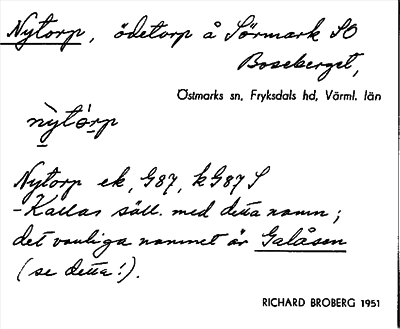 Nytorp, ödetorp å Sörmark SO
Boseberget,
Östmarks sn, Fryksdals hd, Värml. län
nỳtó̱rp
Nytorp ek, G87, kG87 S
-Kallas säll. med detta namn;
det vanliga namnet är Galåsen
(se detta!).
RICHARD BROBERG 1951